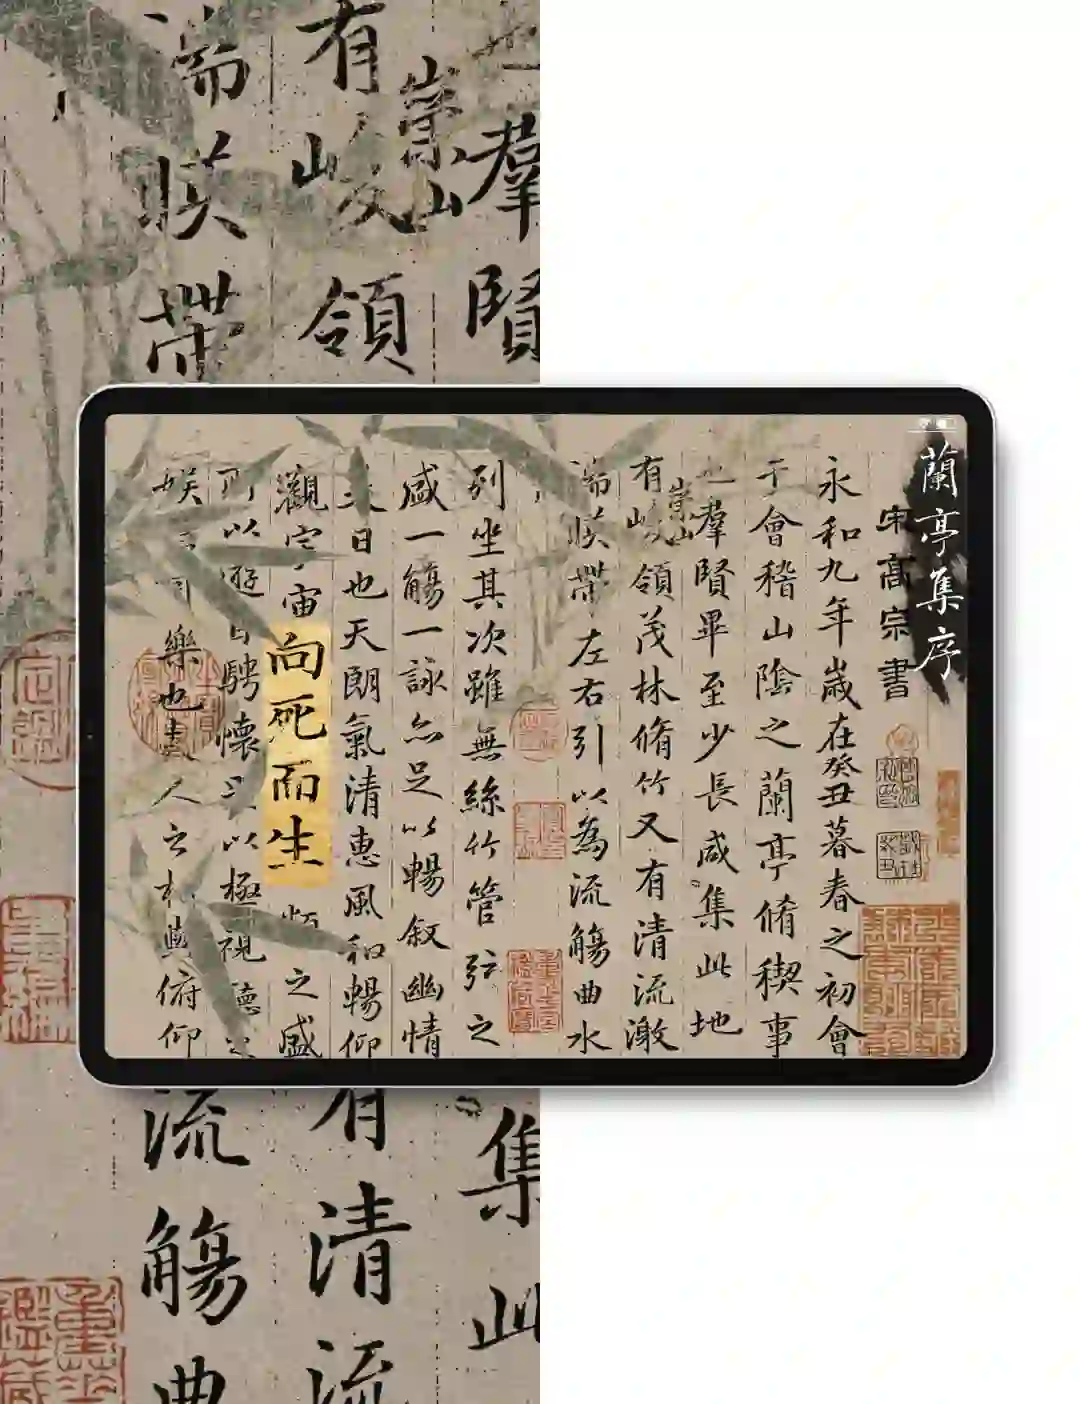 蘭亭集序
宋高宗書
永和九年歲在癸丑暮春之初會
于會稽山陰之蘭亭脩稧事
也羣賢畢至少長咸集此地
有崇山峻領茂林脩竹又有清流激
湍暎帶左右引以為流觴曲水
列坐其次雖無絲竹管弦之
盛一觴一詠亦足以暢敘幽情
日也天朗氣清惠風和暢仰
觀宇宙向死而生之盛
所以遊目騁懷足以極視聽之
娛可樂也夫人之相與俯仰
羣賢
崇山
有峻領
湍暎帶
集此
有清流
流觴曲